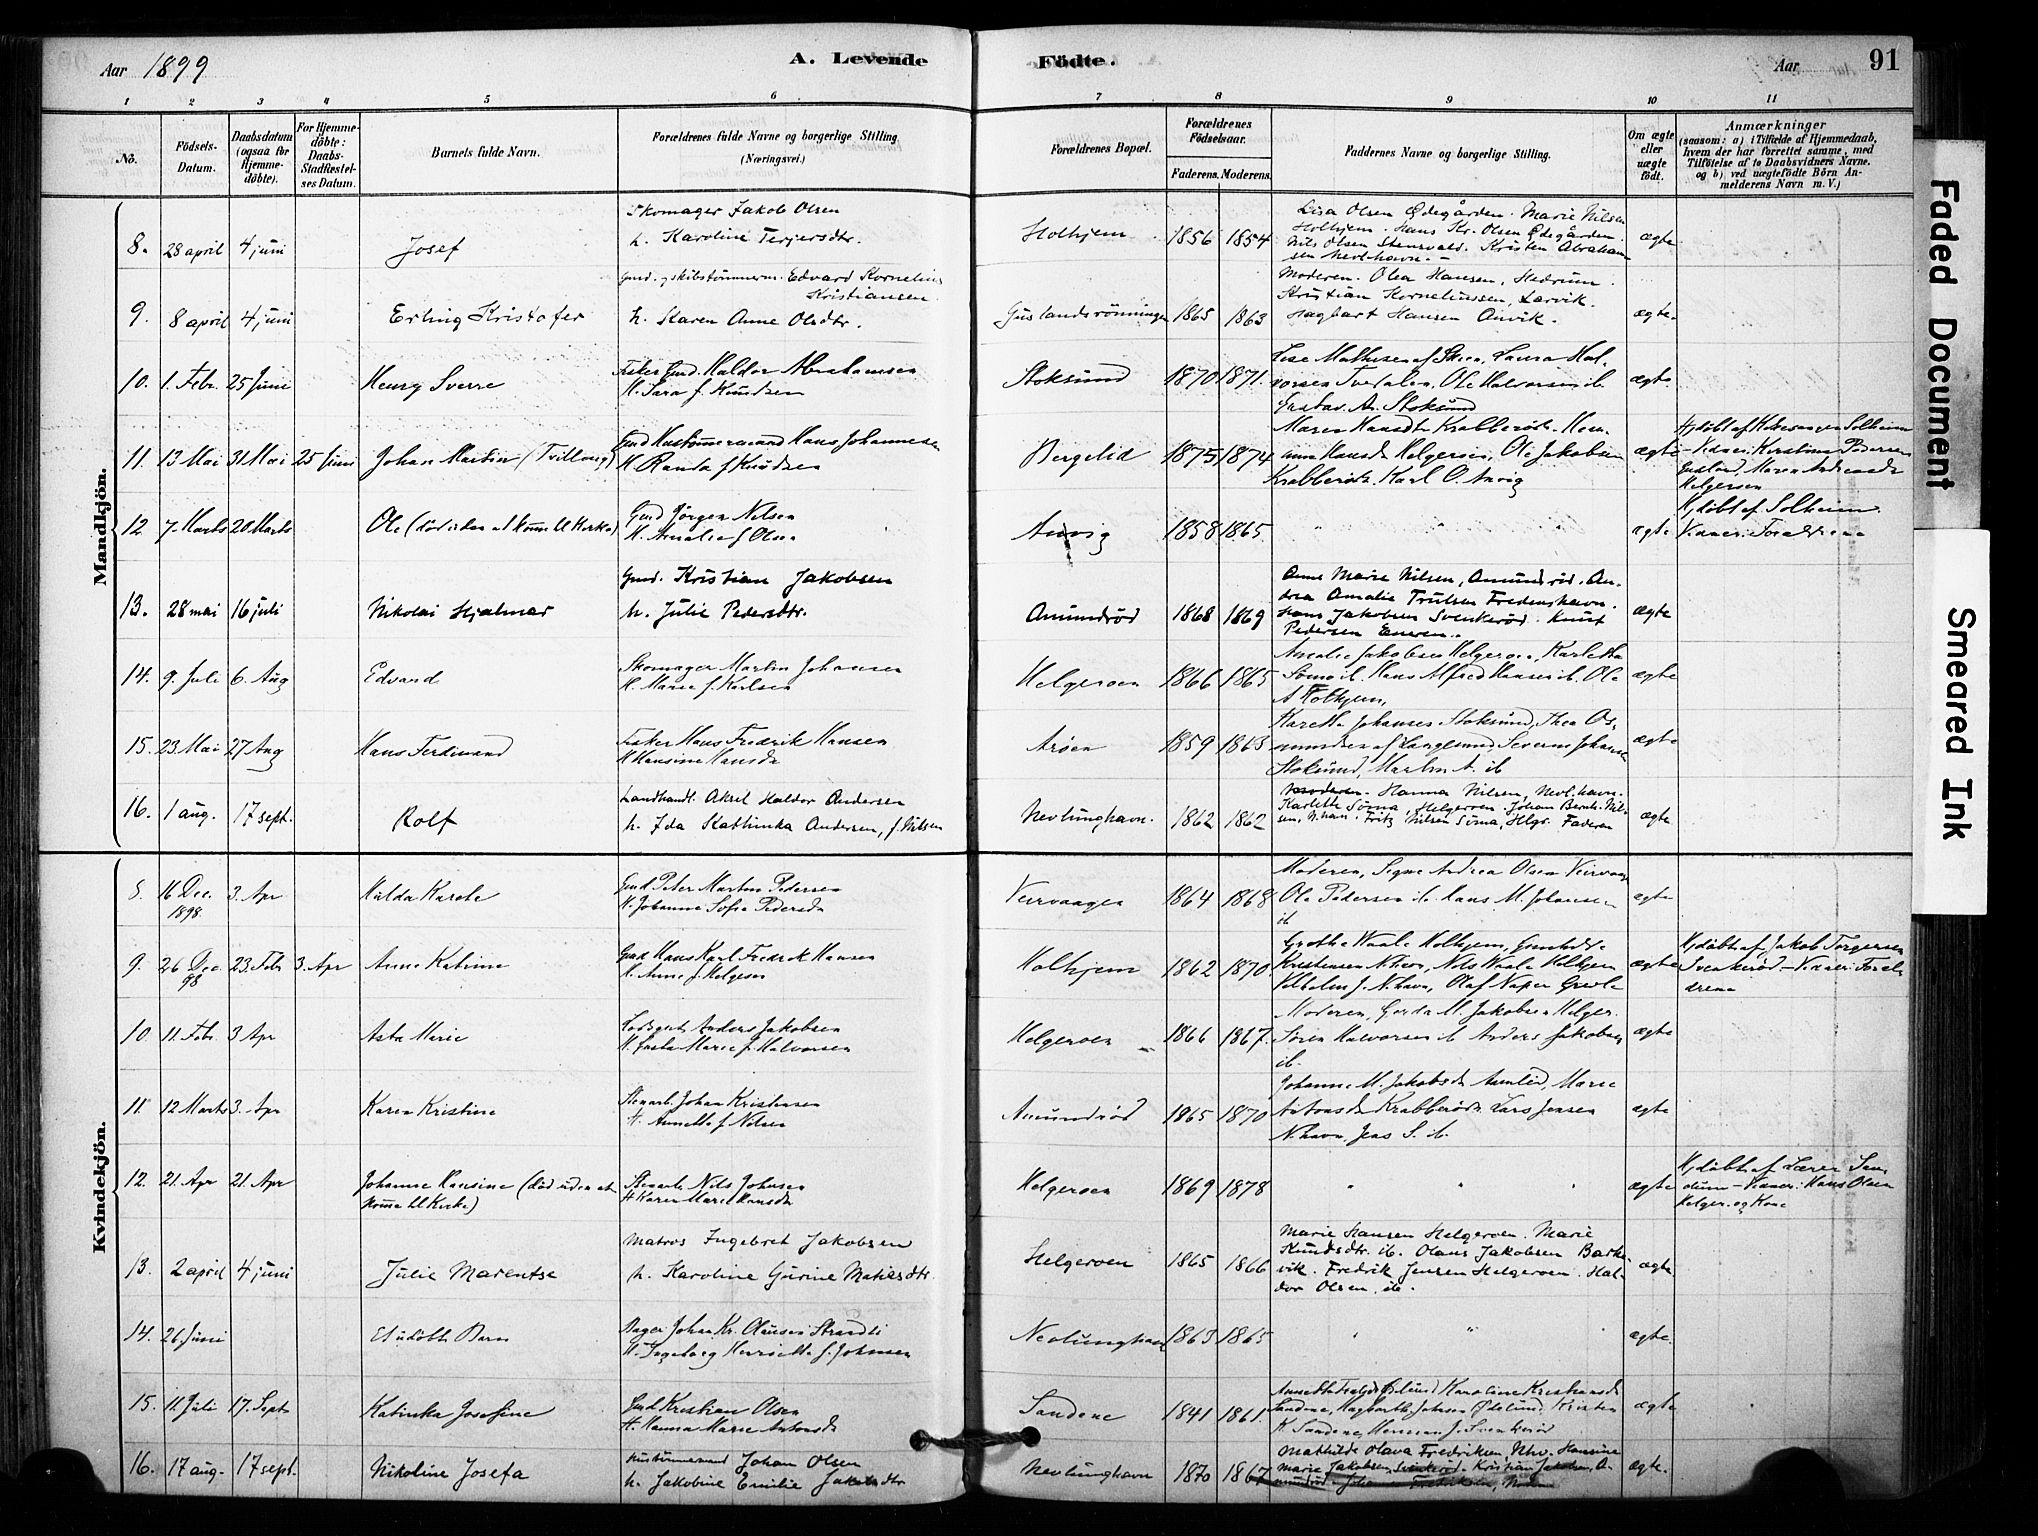 Aar 1899
A. Levende
Födte.
Aar
91
1 2 3 4 5 6 7 8 9 10 11
No.
Födsels-Datum.
Daabsdatum (ogsaa for Hjemme-döbte).
For Hjemme-döbte: Daabs-Stadfæstel-ses Datum.
Barnets fulde Navn.
Forældrenes fulde Navne og borgerlige Stilling. (Næringsvei.)
Forældrenes Bopæl.
Forældrenes Födselsaar.
Faderens. Moderens.
Faddernes Navne og borgerlige Stilling.
Om ægte eller uægte födt.
Anmærkninger
(saasom: a) i Tilfælde af Hjemmedaab,
hvem der har forrettet samme, med
Tilföielse af to Daabsvidners Navne.
og b) ved uægtefödte Börn An-
melderens Navn m. V.)
Mandkjön.
8. 28 april 4 juni Josef
Skomager Jakob Olsen
h. Karoline Terjersdtr.
Holhjem 1856 1854
Lisa Olsen Ødegården. Marie Nilsen
Holhjem. Hans Kr. Olsen Ødegården.
Nils Olsen Stensvald. Kristen Abraham
sen Nevlhavn.
ægte
9. 8 april 4 juni Erling Kristofer
Gmd. og skibstømmerm. Edvard Kornelius
Kristiansen
h. Karen Anne Olsdtr.
Guslandsrönningen 1865 1863
Moderen. Olea Hansen, Hedrum.
Kristian Korneliussen, Larvik.
Hagbart Hansen Anvik.
ægte.
10. 1. Febr. 25 Juni Henry Sverre
Fisker Gmd. Haldor Abrahamsen
H. Sara f. Knudsen
Stoksund 1870 1871.
Lise Mathisen af Skien, Laura Hal-
vorsen Tvedalen, Ole Halvorsen ib.
Gustav An. Stoksund
ægte
11. 13 Mai 31 Mai 25 Juni Johan Martin (Tvilling)
Gmd Hustömmermand Hans Johannesen
H. Randa f. Knudsen
Bergelid 1875 1874
Maren Hansdtr Krabberöd. Hen-
Hansd. Helgeroen, Ole Jakobsen
Krabberöd. Karl O. Anvig
ægte
Solheim
Vidner: Pedersen
Gusland, Maren
Helgeroen
12 7. Marts 20 Marts Ole (död uden at komme til Kirke)
Gmd Jörgen Nilsen
H. Amalie f Olsen
Anvig 1858 1865 " " ægte
Hjdöbt af Solheim
Vidner: Foreldrene
13. 28 mai 16 juli Nikolai Hjalmar
Gmd. Kristian Jakobsen
h. Julie Pedersdtr.
Amundröd 1868 1869
Anne Marie Nilsen, Amundröd. An-
drea Amalie Trulsen Fredenshavn.
Hans Jakobsen Svenkeröd. Knut
Pedersen
ægte
14. 9. Juli 6. Aug Edvard
Skomager Martin Johansen
H. Marie f. Karlsen
Helgeroen 1866 1865
Amalie Jakobsen Helgeroen, Karlette
ib. Hans Alfred Hansen ib. Ole
A Holhjem,
ægte
15. 23 Mai 27 Aug Hans Ferdinand
Fisker Hans Fredrik Hansen
H. Hansine Hansdr
Aröen 1859 1863
Karette Johansen Stoksund, Thea Os-
mundsen af Langesund, Severin Johansen
Stoksund, Martin A. ib
ægte
16. 1 aug. 17 sept. Rolf
Landhandl. Aksel Haldor Andersen
h. Ida Kathinka Andersen, f. Nilsen
Nevlunghavn. 1862 1862
Moderen. Hanna Nilsen, Nevl.havn.
Karlette Sörna, Helgeroen. Johan Bernh. Nil-
sen, N.havn. Fritz Nilsen Sörna, Hlgr. Faderen
ægte
Kvindekjön.
8. 16 Dec. 1898. 3. Apr Hilda Karete
Gmd Peter Martin Pedersen
H. Johanne Sofie Pedersdr
Veirvaagen 1864 1868
Moderen, Signe Andrea Olsen Veirvaag
Ole Pedersen ib. Hans M. Johansen
ib
ægte
9. 26 Dec. 98 23. Febr 3. Apr Anne Katrine
Gmd Hans Karl Fredrik Hansen
H. Anne f. Helgesen
Holhjem 1862 1870
Grethe Waale Holhjem,
Kristensen N.havn, Nils Waale Holhjem
J. N.havn, Olaf
ægte
Hjdöbt af Jakob Torgersen
Svenkeröd - Vidner: Forel-
drene
10 11. Febr 3 Apr Asta Marie
Lodsgut Anders Jakobsen
H. Marie f. Halvorsen
Helgeroen 1866 1867.
Moderen, Gerda M. Jakobsen Helger.
Sören Halvorsen ib Anders Jakobsen
ib.
ægte
11. 12 Marts 3. Apr Karen Kristine
Stenarb. Johan Kristensen
H. Annette f Nilsen
Amundröd 1865 1870
Johanne M. Jakobsdr Aamlid, Marie
Antonsdr Krabberöd. Lars Jensen
N.havn, Jens S. ib.
ægte
12. 21. Apr 21. Apr Johanne Hansine (död uden at
komme til Kirke)
Stenarb. Nils Johnsen
H Karen Marie Hansdr
Helgeroen 1869 1878 " " " ægte
Hjdöbt af Lærer San-
dum - Vidner: Hans Olsen
Helger. og Kone
13. 2 april 4 juni Julie Marentse
Matros Ingebret Jakobsen
h. Karoline Gurine Matiasdtr.
Helgeroen 1865 1866
Marie Hansen Helgeroen. Marie
Knudsdtr. ib. Olaus Jakobsen Barke-
vik. Fredrik Jensen Helgeroen. Hal-
dor Olsen, ib.
ægte
14. 26 Juni Et udöbt Barn
Bager Johan Kr. Olausen Strandli
H. Ingeborg Henriette f. Johnsen
Nevlunghavn 1863 1865 " " " ægte.
15. 11. Juli 17. Sept Katinka Josefine
Gmd Kristian Olsen
H. Hanna Marie Antonsdr
Sandene 1841 1861.
Karoline Kristiansdr
Sandene, Hagbarth Johnsen Ödelund, Kristen
K. Sandene, Herman J. Svenkeröd
ægte
16. 17 aug. 17 sept. Nikoline Josefa
Hustömmermand Johan Olsen
h. Jakobine Emilie Jakobsdtr
Nevlunghavn 1870 1867
Mathilde Olava Fredriksen, Nhv. Hansine
Marie Jakobsen, Svenkeröd. Kristian Jakobsen, A-
mundröd. Johan Fredriksen,
ægte.
Faded Document
Smeared Ink